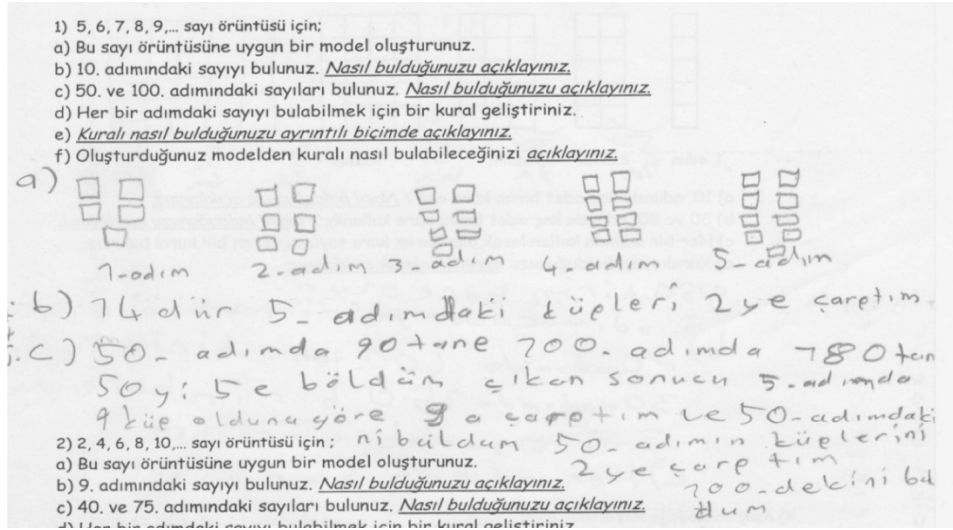 1) 5, 6, 7, 8, 9,... sayı örüntüsü için;
a) Bu sayı örüntüsüne uygun bir model oluşturunuz.
b) 10. adımındaki sayıyı bulunuz. Nasıl bulduğunuzu açıklayınız.
c) 50. ve 100. adımındaki sayıları bulunuz. Nasıl bulduğunuzu açıklayınız.
d) Her bir adımdaki sayıyı bulabilmek için bir kural geliştiriniz.
e) Kuralı nasıl bulduğunuzu ayrıntılı biçimde açıklayınız.
f) Oluşturduğunuz modelden kuralı nasıl bulabileceğinizi açıklayınız.
a)
1-adım 2-adım 3-adım 4-adım 5-adım
b) 14 dür 5-adımdaki küpleri 2 ye çarptım.
c) 50- adımda 90 tane 100- adımda 180 tan
50 yi 5 e böldüm çıkan sonucu 5-adımda
9 küp olduna göre 9 a çarptım ve 50-adımdaki
ni buldum 50-adımın küplerini
2 ye çarptım
100-dekini bu
dum
2) 2, 4, 6, 8, 10,... sayı örüntüsü için ;
a) Bu sayı örüntüsüne uygun bir model oluşturunuz.
b) 9. adımındaki sayıyı bulunuz. Nasıl bulduğunuzu açıklayınız.
c) 40. ve 75. adımındaki sayıları bulunuz. Nasıl bulduğunuzu açıklayınız.
d) Her bir adımdaki sayıyı bulabilmek için bir kural geliştiriniz.